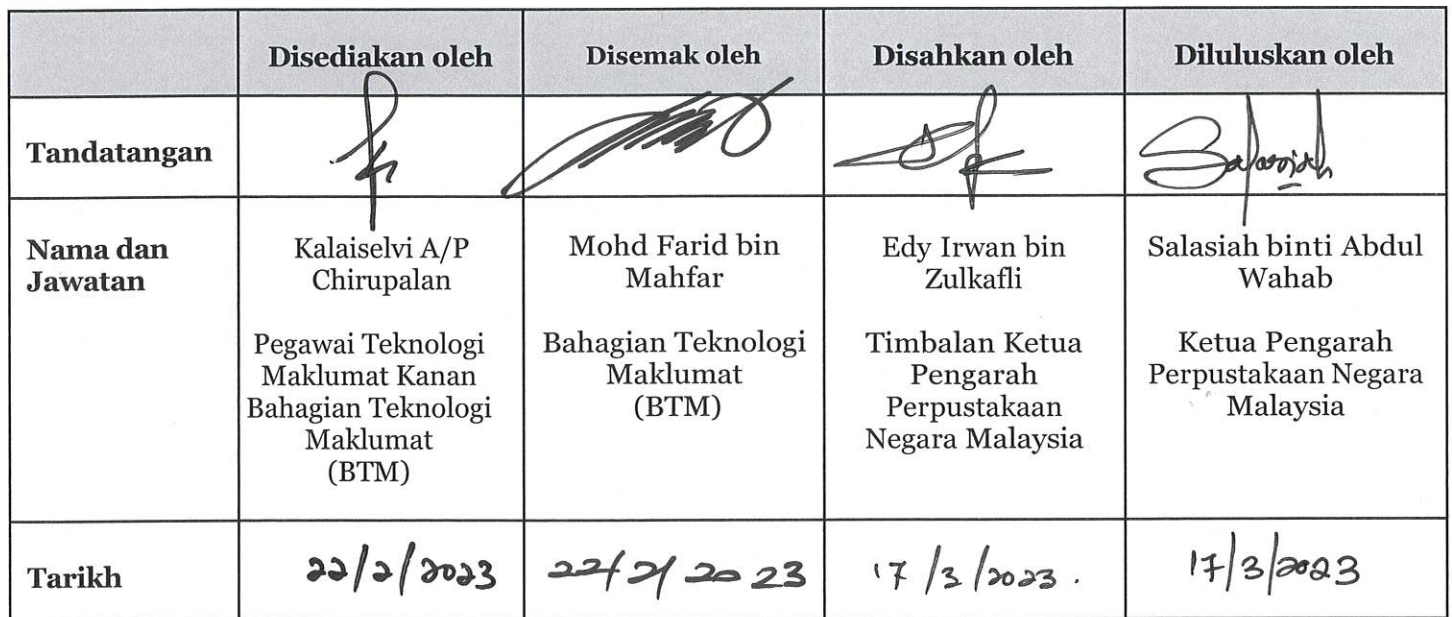 Disediakan oleh
Disemak oleh
Disahkan oleh
Diluluskan oleh
Tandatangan
Nama dan
Jawatan
Kalaiselvi A/P
Chirupalan
Pegawai Teknologi
Maklumat Kanan
Bahagian Teknologi
Maklumat
(BTM)
Mohd Farid bin
Mahfar
Bahagian Teknologi
Maklumat
(BTM)
Edy Irwan bin
Zulkafli
Timbalan Ketua
Pengarah
Perpustakaan
Negara Malaysia
Salasiah binti Abdul
Wahab
Ketua Pengarah
Perpustakaan Negara
Malaysia
Tarikh
22/2/2023
22/2/2023
17/3/2023.
17/3/2023